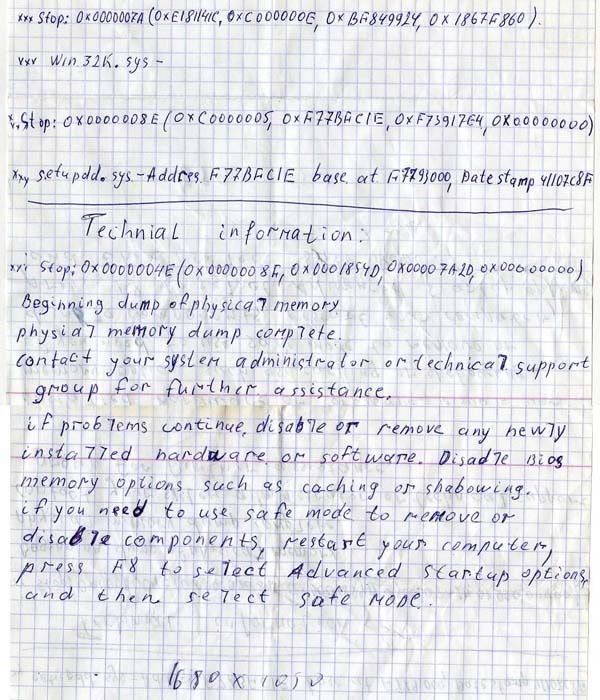 xxx Stop: 0x0000007A (0xE181141C, 0xC000000E, 0xBF849924, 0x1867F860).
xxx Win 32K. sys -
xxx Stop: 0x0000008E (0xC0000005, 0xF77BFC1E, 0xF7391764, 0x00000000)
xxy setupdd. sys - Addres F77BFC1E base at F7793000, Date stamp 41107C8F
Technial information:
xxi Stop: 0x0000004E (0x0000008F, 0x0001854D, 0x00007A2D, 0x00000000)
Beginning dump of physical memory
physial memory dump complete.
contact your system administralor or technical support
group for further assistance.
if problems continue, disable or remove any newly
installed hardware or software. Disadle Bios
memory options such as caching or shabowing.
if you need to use safe mode to remove or
disable components, restart your computer,
press F8 to select Advanced Startup options,
and then select safe mode.
1680 x 1050